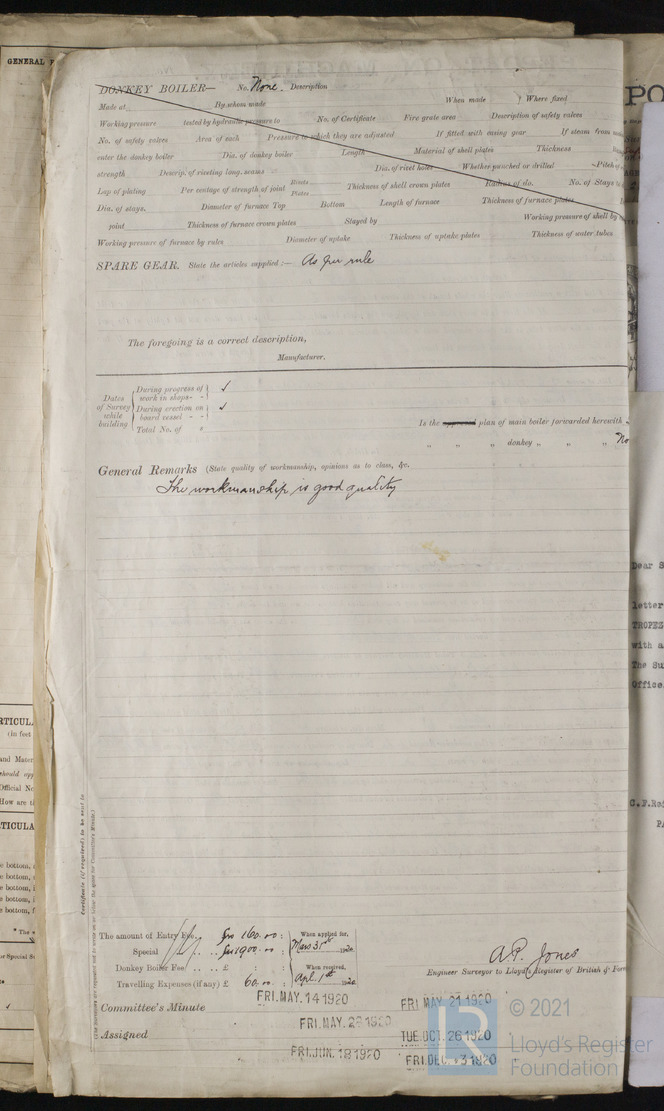 GENERAL
DONKEY BOILER— No. None. Description
Made at By whom made When made Where fixed
Working pressure tested by hydraulic pressure to No. of Certificate Fire grate area Description of safety valves
No. of safety valves Area of each Pressure to which they are adjusted If fitted with easing gear If steam from
enter the donkey boiler Dia. of donkey boiler Length Material of shell plates Thickness
strength Descrip. of riveting long. seams Dia. of rivet holes Whether punched or drilled Pitch of
Lap of plating Per centage of strength of joint Rivets Plates Thickness of shell crown plates Radius of do. No. of Stays
Dia. of stays. Diameter of furnace Top Bottom Length of furnace Thickness of furnace plates
joint Thickness of furnace crown plates Stayed by Working pressure of shell by
Working pressure of furnace by rules Diameter of uptake Thickness of uptake plates Thickness of water tubes
SPARE GEAR. State the articles supplied:— As per rule
The foregoing is a correct description,
Manufacturer.
Dates of Survey while building
During progress of work in shops- - ✓
During erection on board vessel - - ✓
Total No. of
Is the approved plan of main boiler forwarded herewith
„ „ „ donkey „ „ „ No
General Remarks (State quality of workmanship, opinions as to class, &c.
The workmanship is good quality
Dear S
letter
TROPEZ
with a
The Su
Office
C.F.Rei
PA
RTICUL
(in feet
and Mater
should app
Official No
How are t
TICULA
e bottom,
e bottom,
e bottom,
e bottom,
Certificate (if required) to be sent to
The amount of Entry Fee . . frs 160.00 : When applied for,
Special . . frs 1900.00 : Mars 31st 1920
Donkey Boiler Fee . . . £ : : When received,
Travelling Expenses (if any) £ 60.00 : Apl. 1st 1920
A.P. Jones
Engineer Surveyor to Lloyd's Register of British & Fore
Committee's Minute FRI. MAY. 14 1920 FRI MAY 21 1920
FRI. MAY. 28 1920
Assigned TUE. OCT. 26 1920
FRI. JUN. 18 1920 FRI. DEC. 3 1920
© 2021
Lloyd's Register
Foundation